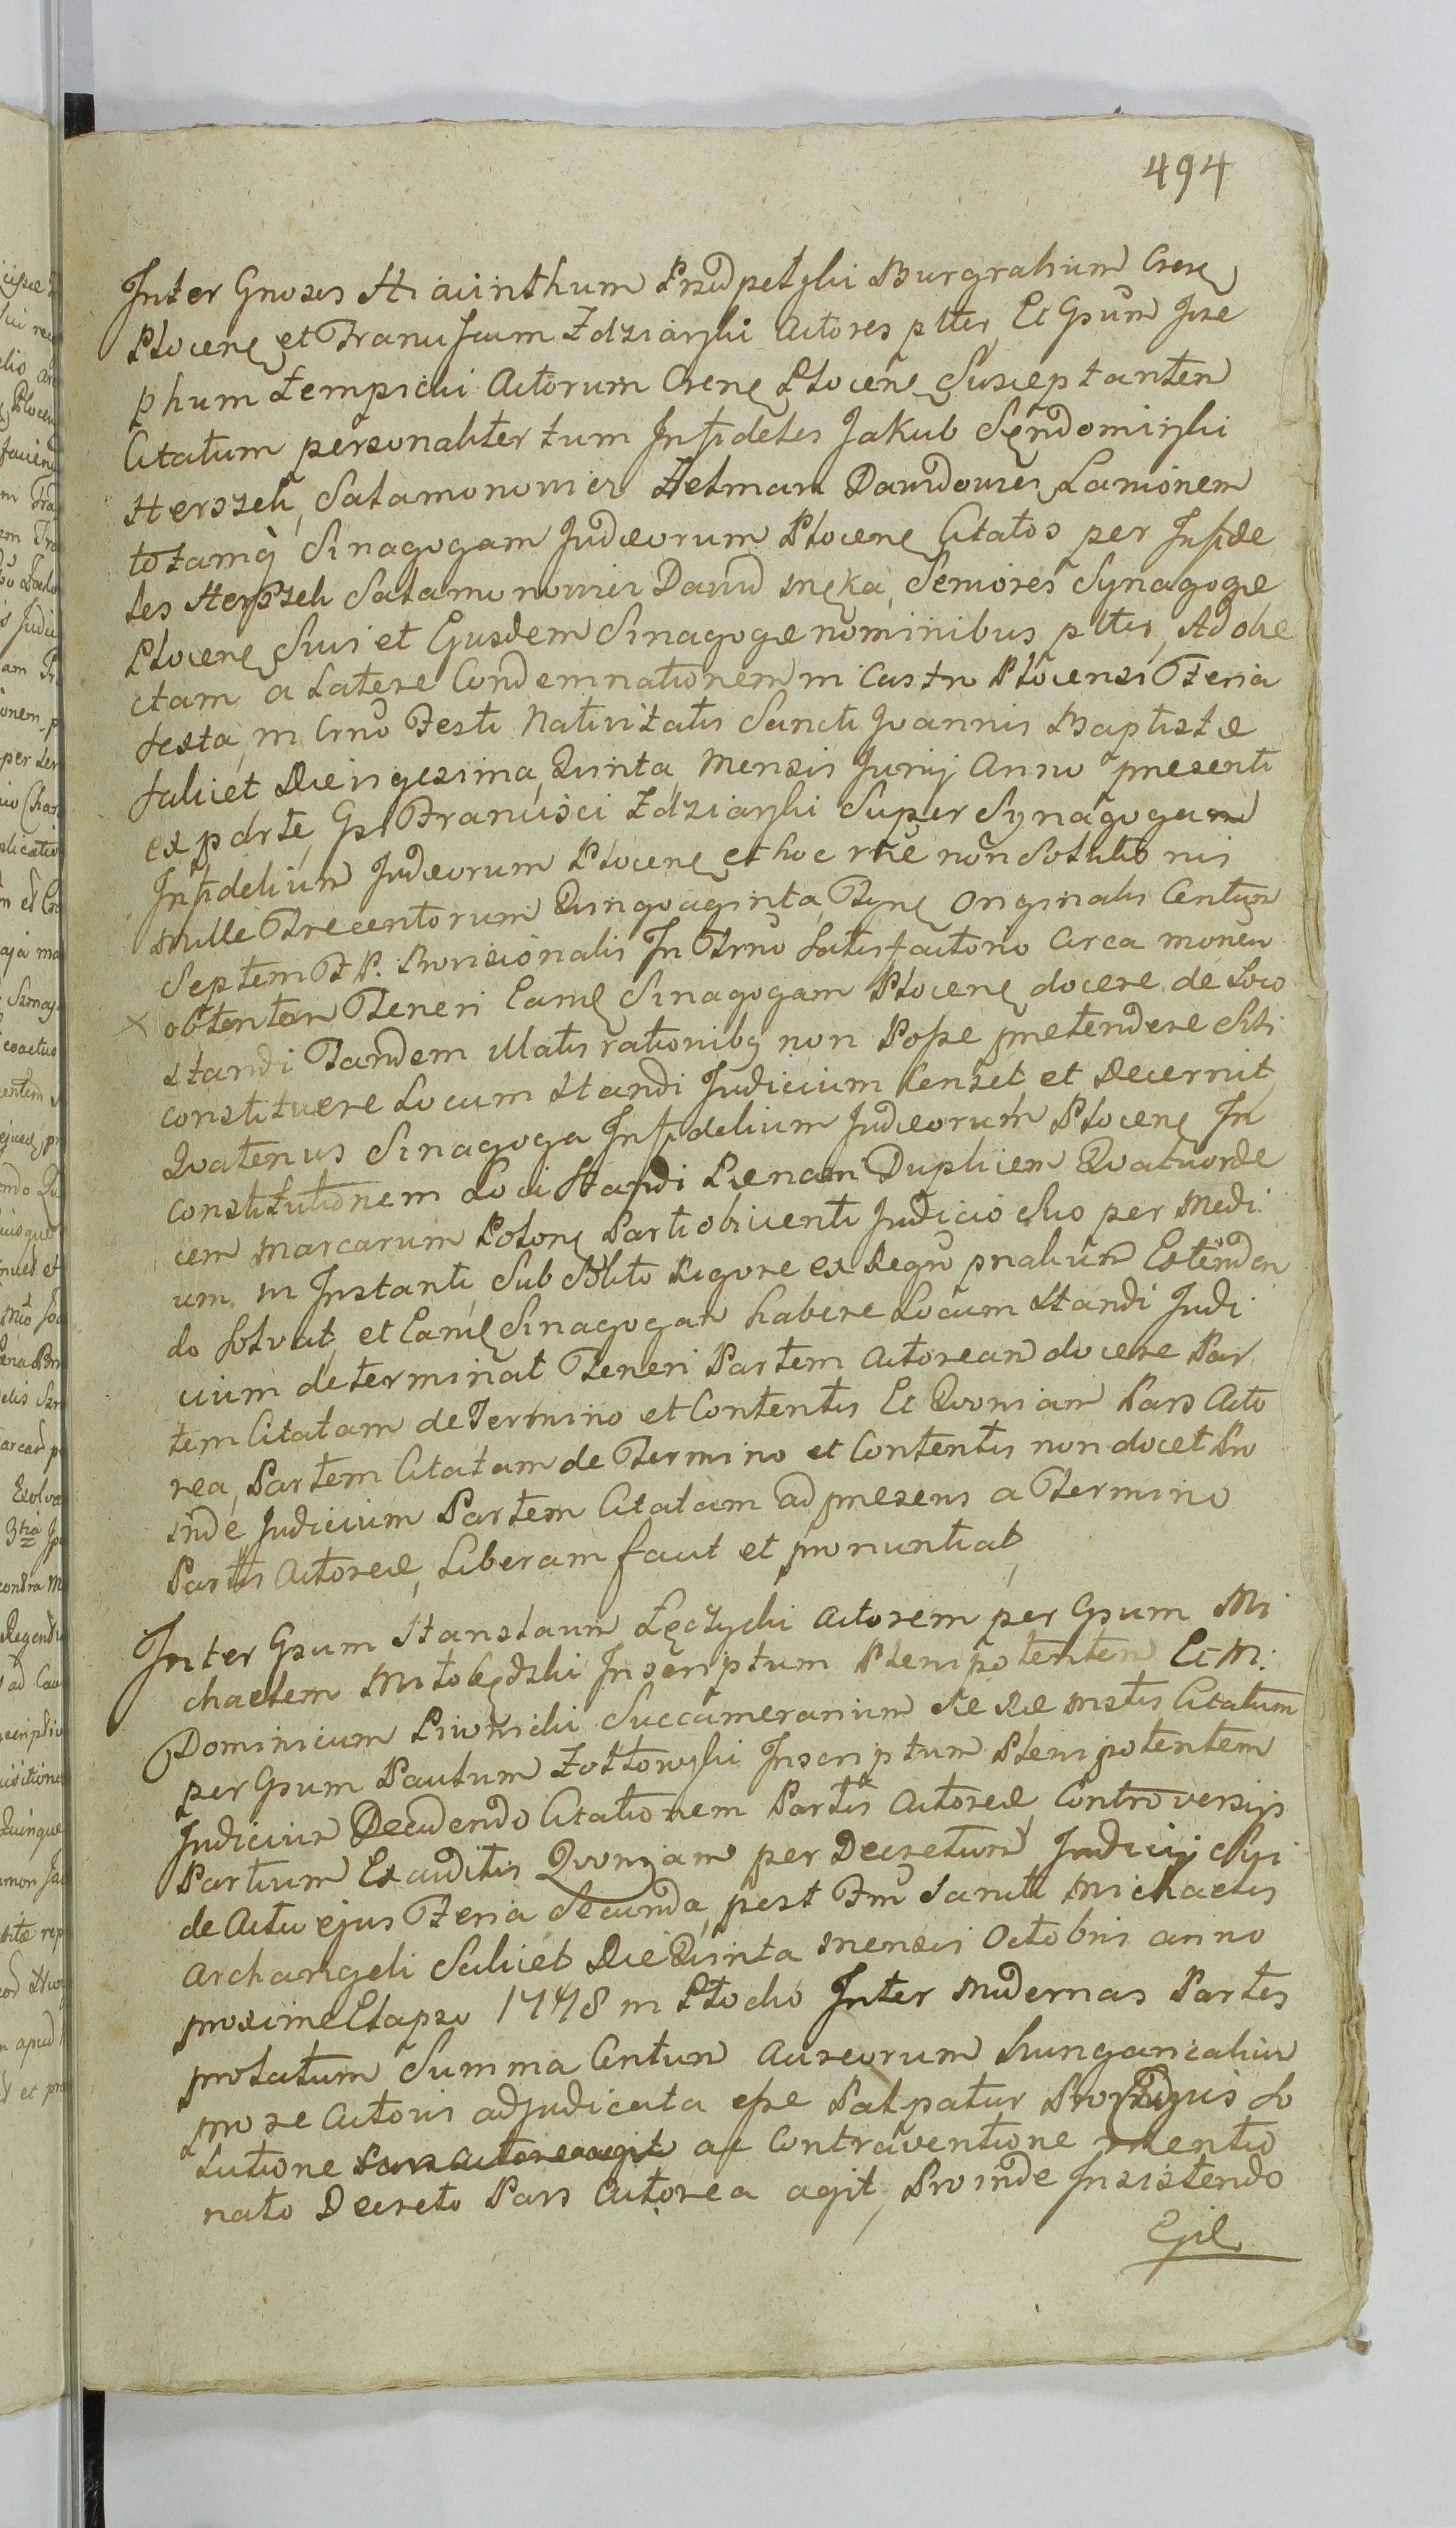 494
Inter Gnosos Hiacinthum Przedpełski Burgrabium Crens
Plocens et Franciscum Zdziarski Actores plter Et Gsum Jose
phum Łempicki Actorum Crens Plocens Susceptanten
Citatum personaliter tum Infideles Jakub Sędomirski
Herszek Salamonowicz Helman Dawidowicz Lanionem
totamq Sinagogam Judæorum Plocens Citatos per Infide
les Herszek Salamonowicz Dawid męka, Seniores Synagogæ
Plocens Suis et Ejusdem Sinagogæ nominibus plter, Ad obie
ctam a Latere Condemnationem in Castro Plocensi Feria
sexta, in Crno Festi Nativitatis Sancti Joannis Baptistæ
scilicet Die Vigesima Quinta Mensis Junij Anno presenti
ex parte Gsi Francisci Zdziarski Super Synagogam
Infidelium Judæorum Plocens et hoc rne non Solutionis
mille Trecentorum Quingvaginta Tyns Originalis Centum
Septem F. P. Provisionalis In Trno Satisfactorio Circa monen
× obtentam Teneri Eamd Sinagogam Plocens docere de Loco
standi Tandem illatis rationibq non Posse pretendere Sibi
constituere Locum standi Judicium Censet, et Decernit
Qvatenus Sinagoga Infidelium Judæorum Plocens In
constitutionem Loci standi Pænam Duplicem Qvatuorde
cem marcarum Polons Parti obiicenti Judicio Suo per Medi
um in Instanti Sub Solito Rigore ex Regro pnalium Extenden
do Solvat, et Eamd Sinagogam habere Locum Standi Judi
cium determinat Teneri Partem Actoream docere Par
tem Citatam de Termino et Contentis Et Qvoniam Pars Acto
rea, Partem Citatam de Termino et Contentis non docet Pro
inde Judicium Partem Citatam ad presens a Termino
Partis Actoreæ, Liberam facit et pronuntiat,
Inter Gsum Stanslaum Łęczycki Actorem per Gsum Mi
chaelem Miłobędzki Inscriptum Plenipotentem Et M:
Dominicum Piwnicki Succamerarium Citatum
per Gsum Paulum Żółtowski Inscriptum Plenipotentem
Judicium Decidendo Citationem Partis Actoreæ Controversijs
Partium Exauditis Qvoniam per Decretum Judicij Sui
de Actu ejus Feria Secunda, post Fm Sancti Michaelis
Archangeli Scilicet Die Qvinta mensis Octobris anno
proxime Elapso 1748 in Płocko Inter modernas Partes
prolatum Summa Centum Aureorum hungaricalium
pro re Actoris adjudicata esse Pro Cujus So
lutione Pars Actorea agit ac Contraventione mentio
nato Decreto Pars Actorea agit, Proinde Insistendo